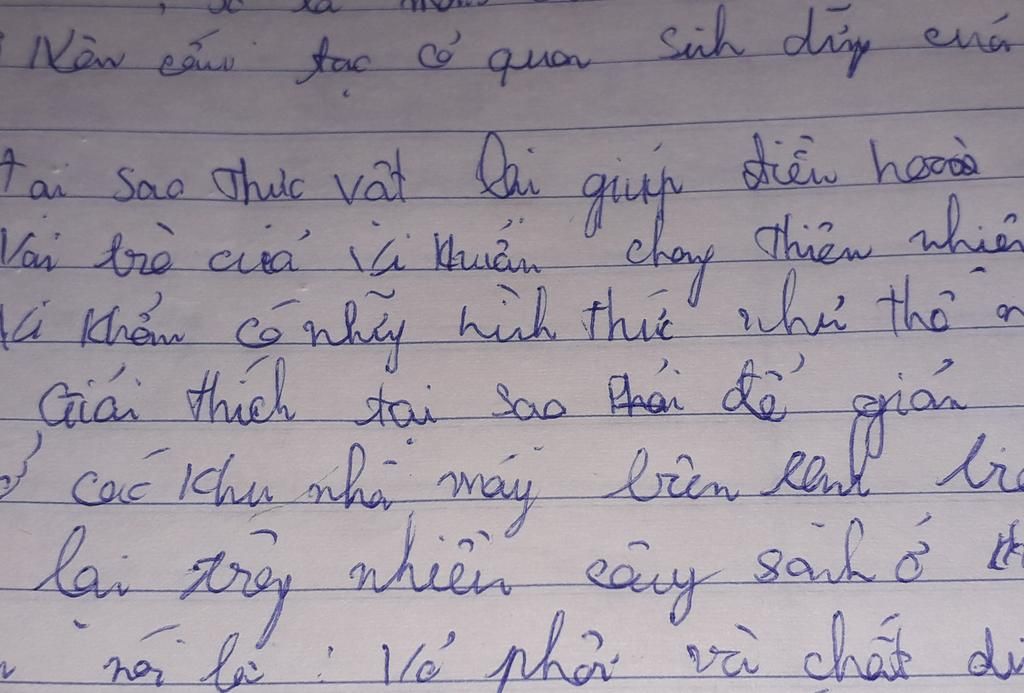 Nên cấu tạc có quan sinh dưỡng cuả
tai sao thưc vât lại giúp điều hoà
Vai trò cuả Vi khuẩn chong thiên nhiên
Vi khẩn có nhữg hình thức như thế n
Giải thích tại sao phải để giản
ở các khu nhà máy bên
lại trồg nhiều cây sanh ở
nói là : Vỏ phở và chất di